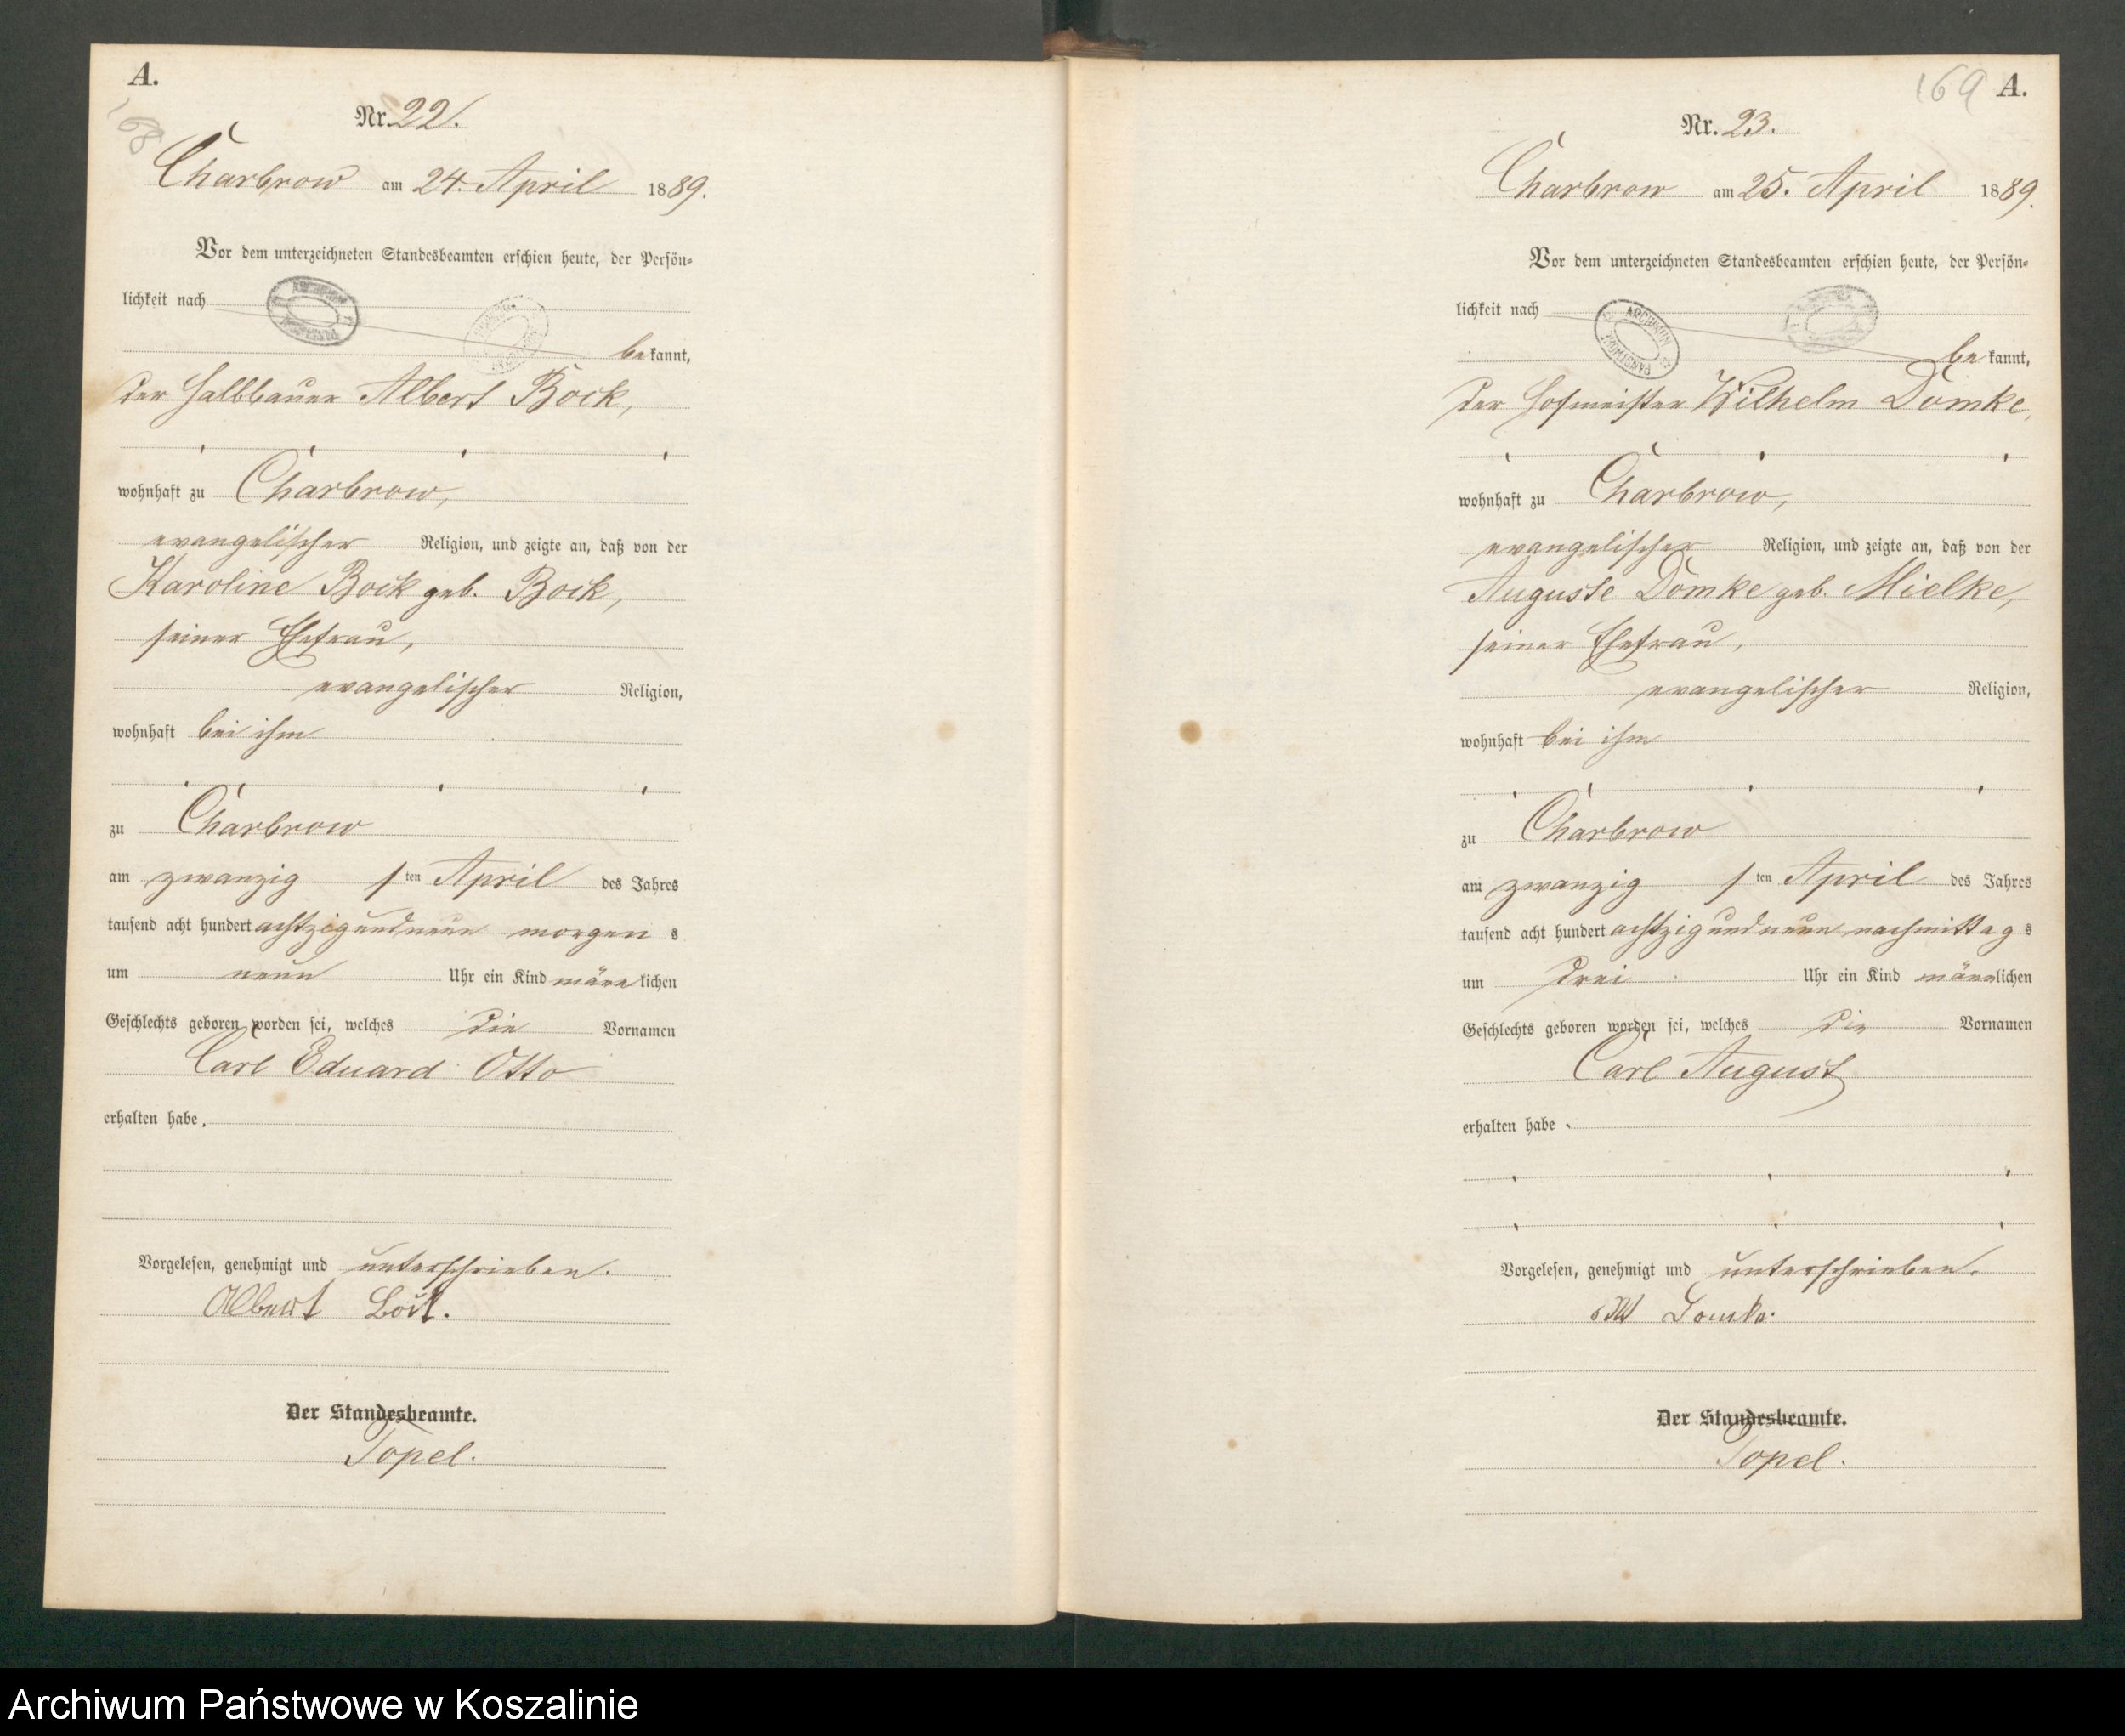 A.
168
Nr. 22.
Charbrow am 24. April 1889.
Vor dem unterzeichneten Standesbeamten erschien heute, der Persön-
lichkeit nach
bekannt,
der Halbbauer Albert Bock,
wohnhaft zu Charbrow,
evangelischer Religion, und zeigte an, daß von der
Karoline Bock geb. Bock,
seiner Ehefrau,
evangelischer Religion,
wohnhaft bei ihm
zu Charbrow
am zwanzigsten April des Jahres
tausend acht hundert achtzig und neun morgens
um neun Uhr ein Kind männlichen
Geschlechts geboren worden sei, welches die Vornamen
Carl Eduard Otto
erhalten habe.
Vorgelesen, genehmigt und unterschrieben.
Albert Bock.
Der Standesbeamte.
Topel.
169 A.
Nr. 23.
Charbrow am 25. April 1889.
Vor dem unterzeichneten Standesbeamten erschien heute, der Persön-
lichkeit nach
ARCHIWUM PAŃSTWOWE
bekannt,
der Hofmeister Wilhelm Domke,
wohnhaft zu Charbrow,
evangelischer Religion, und zeigte an, daß von der
Auguste Domke geb. Mielke,
seiner Ehefrau,
evangelischer Religion,
wohnhaft bei ihm
zu Charbrow
am zwanzigsten April des Jahres
tausend acht hundert achtzig und neun nachmittags
um drei Uhr ein Kind männlichen
Geschlechts geboren worden sei, welches die Vornamen
Carl August
erhalten habe.
Vorgelesen, genehmigt und unterschrieben.
Domke.
Der Standesbeamte.
Topel.
Archiwum Państwowe w Koszalinie